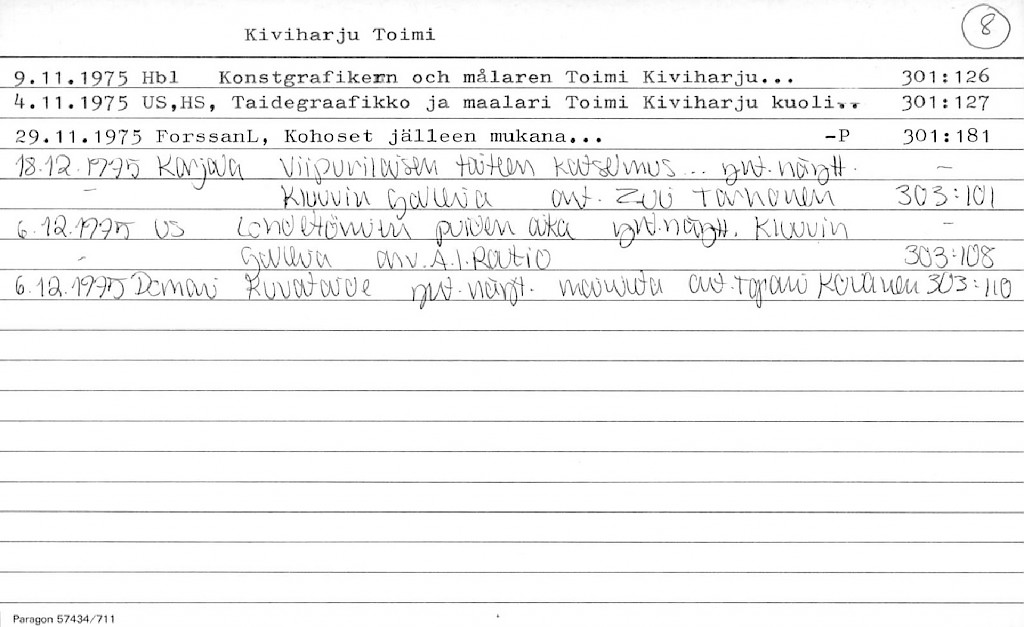 8
Kiviharju Toimi
9.11.1975 Hbl Konstgrafikern och målaren Toimi Kiviharju... 301:126
4.11.1975 US,HS, Taidegraafikko ja maalari Toimi Kiviharju kuoli.. 301:127
29.11.1975 ForssanL, Kohoset jälleen mukana... -P 301:181
18.12.1975 Karjala Viipurilaisen taiteen katselmus... ynt.näytt. –
– Kluuvin Galleria ant. Tarhonen 303:101
6.12.1975 US Lehdettömien puiden aika ynt.näytt. Kluuvin –
– Galleria arv. A.I.Routio 303:108
6.12.1975 Demari Kuvataide ynt.näyt. maininta ant. Tapani Kovanen 303:110
Paragon 57434/711